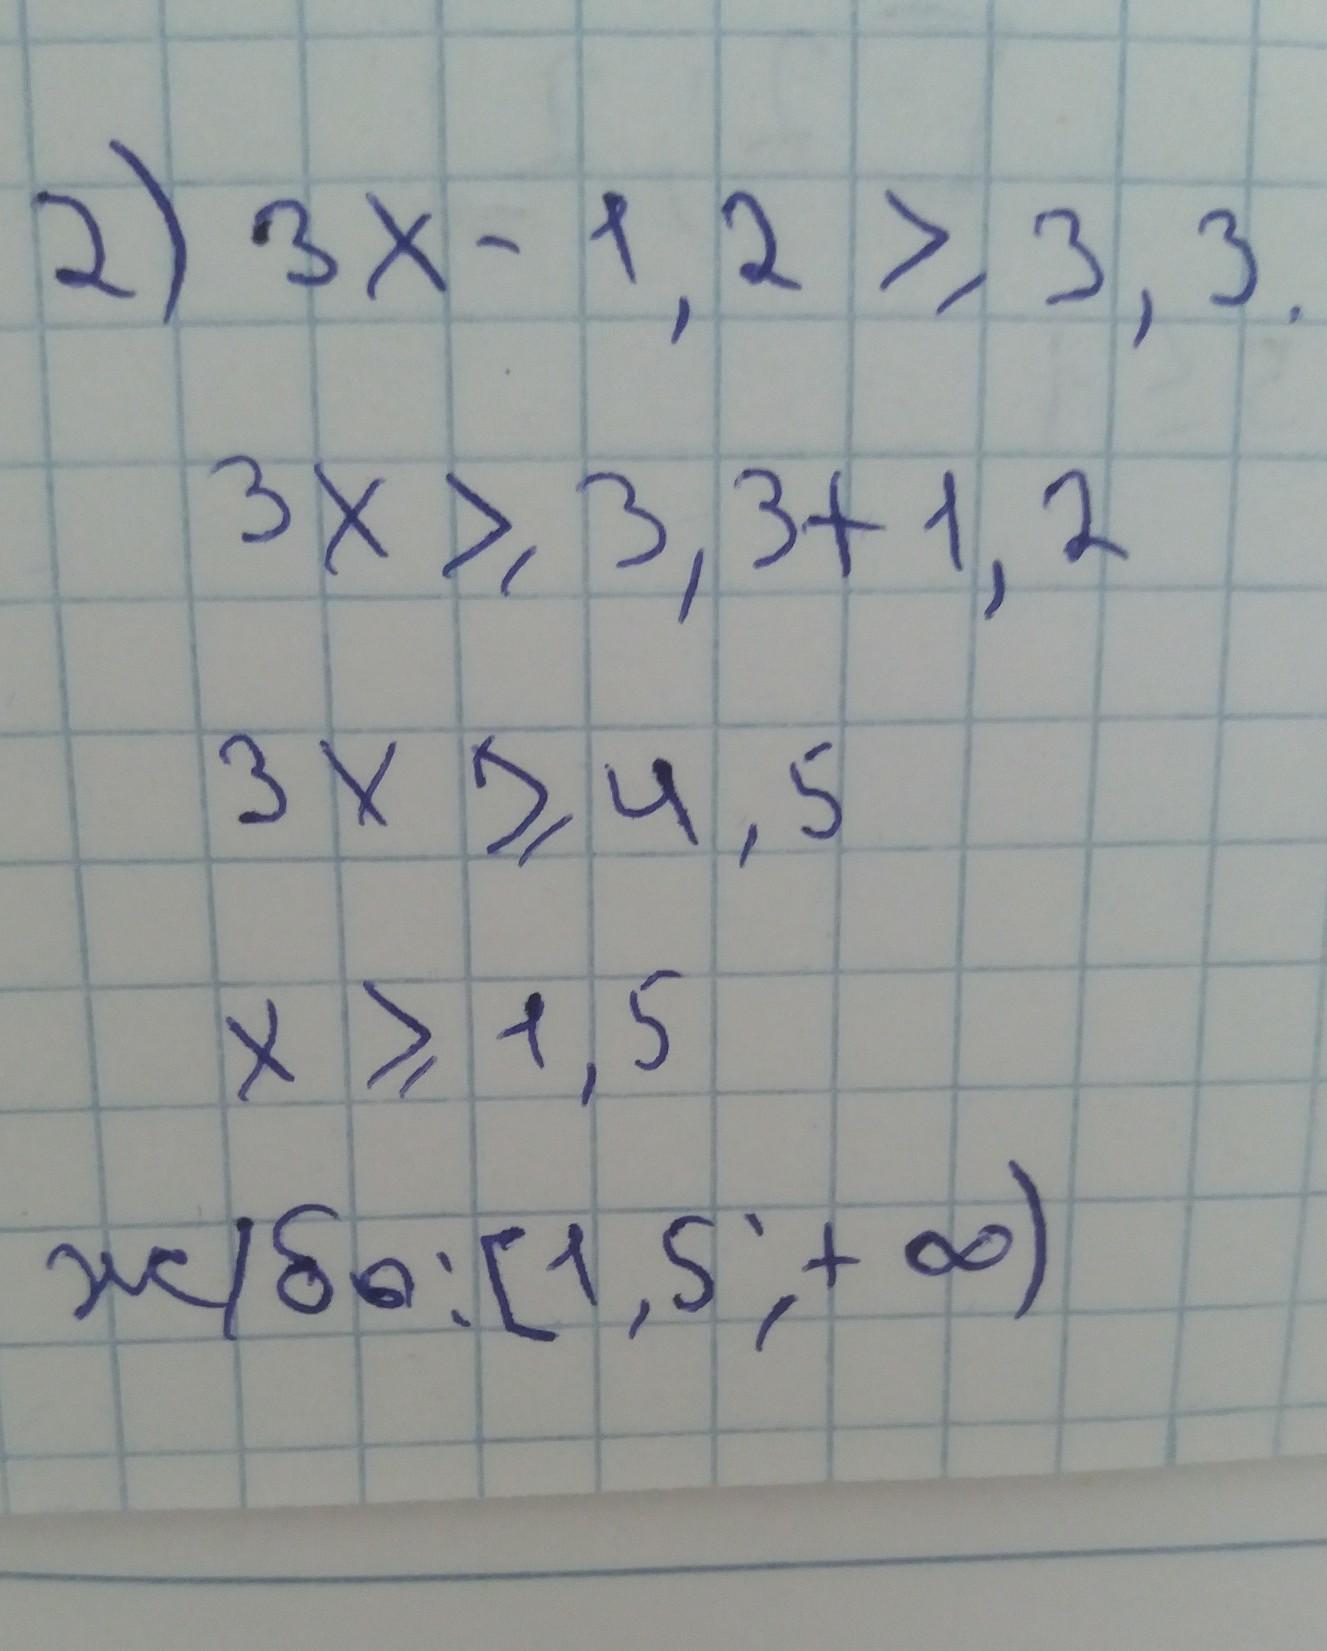 2) 3x - 1,2 ⩾ 3,3.
3x ⩾ 3,3 + 1,2
3x ⩾ 4,5
x ⩾ 1,5
ж/бы: [1,5; +∞)